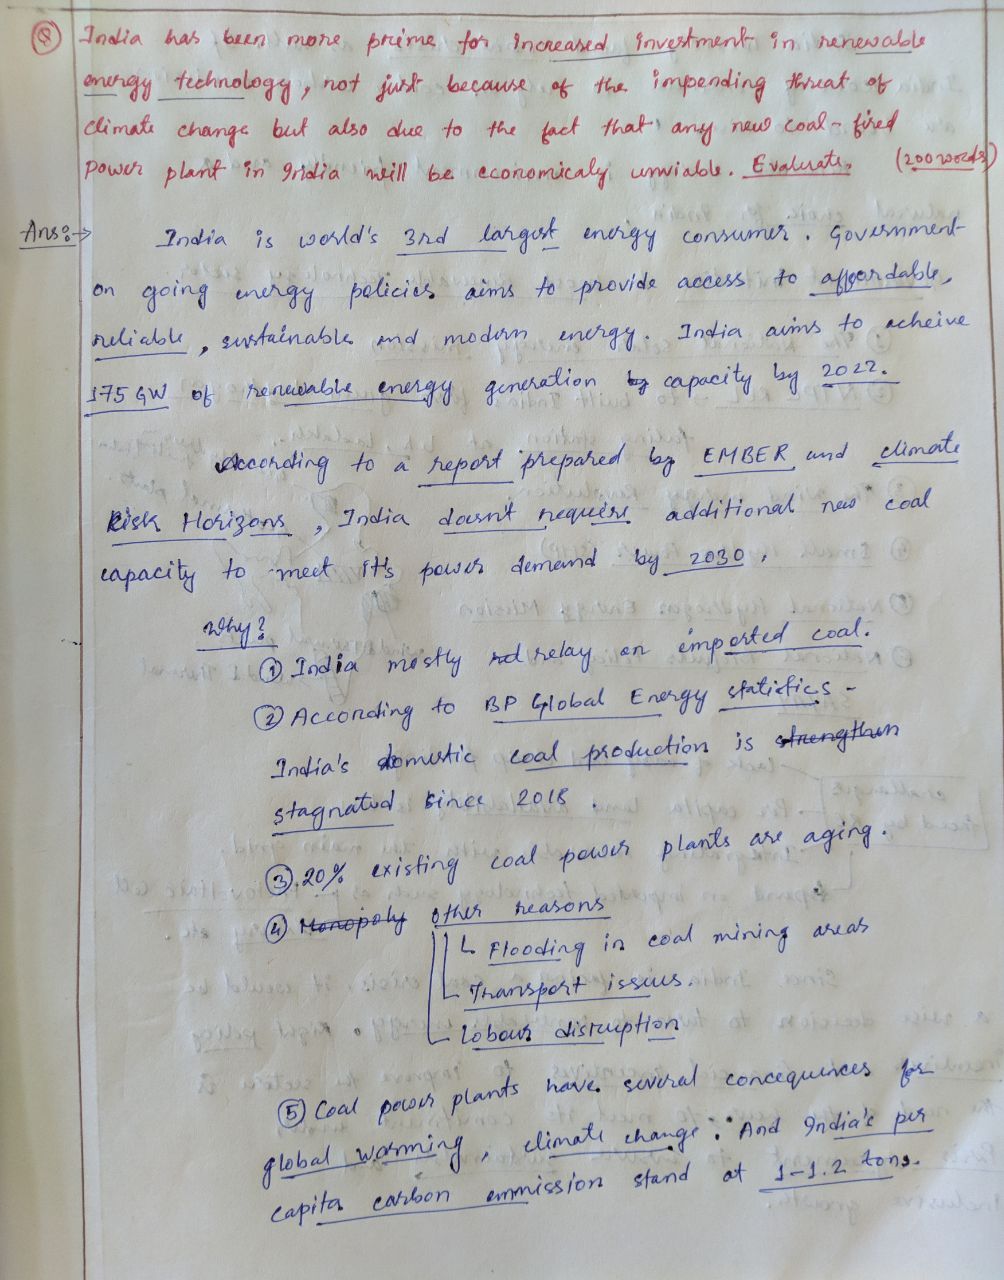 Q India has been more prime for increased investment in renewable
energy technology, not just because of the impending threat of
climate change but also due to the fact that any new coal-fired
power plant in India will be economicaly unviable. Evaluate. (200 words)
Ans:→ India is world's 3rd largest energy consumer. Government
on going energy policies aims to provide access to affoardable,
reliable, sustainable and modern energy. India aims to acheive
175 GW of renewable energy generation by capacity by 2022.
According to a report prepared by EMBER and climate
Risk Horizons, India doesn't require additional new coal
capacity to meet it's power demand by 2030.
Why?
① India mostly relay on imported coal.
② According to BP Global Energy statistics -
India's domestic coal production is strengthen
stagnated since 2018.
③ 20% existing coal power plants are aging.
④ Monopoly other reasons
Flooding in coal mining areas
Transport issues.
Labour disruption
⑤ Coal power plants have several concequences for
global warming, climate change. And India's per
capita carbon emmission stand at 1-1.2 tons.